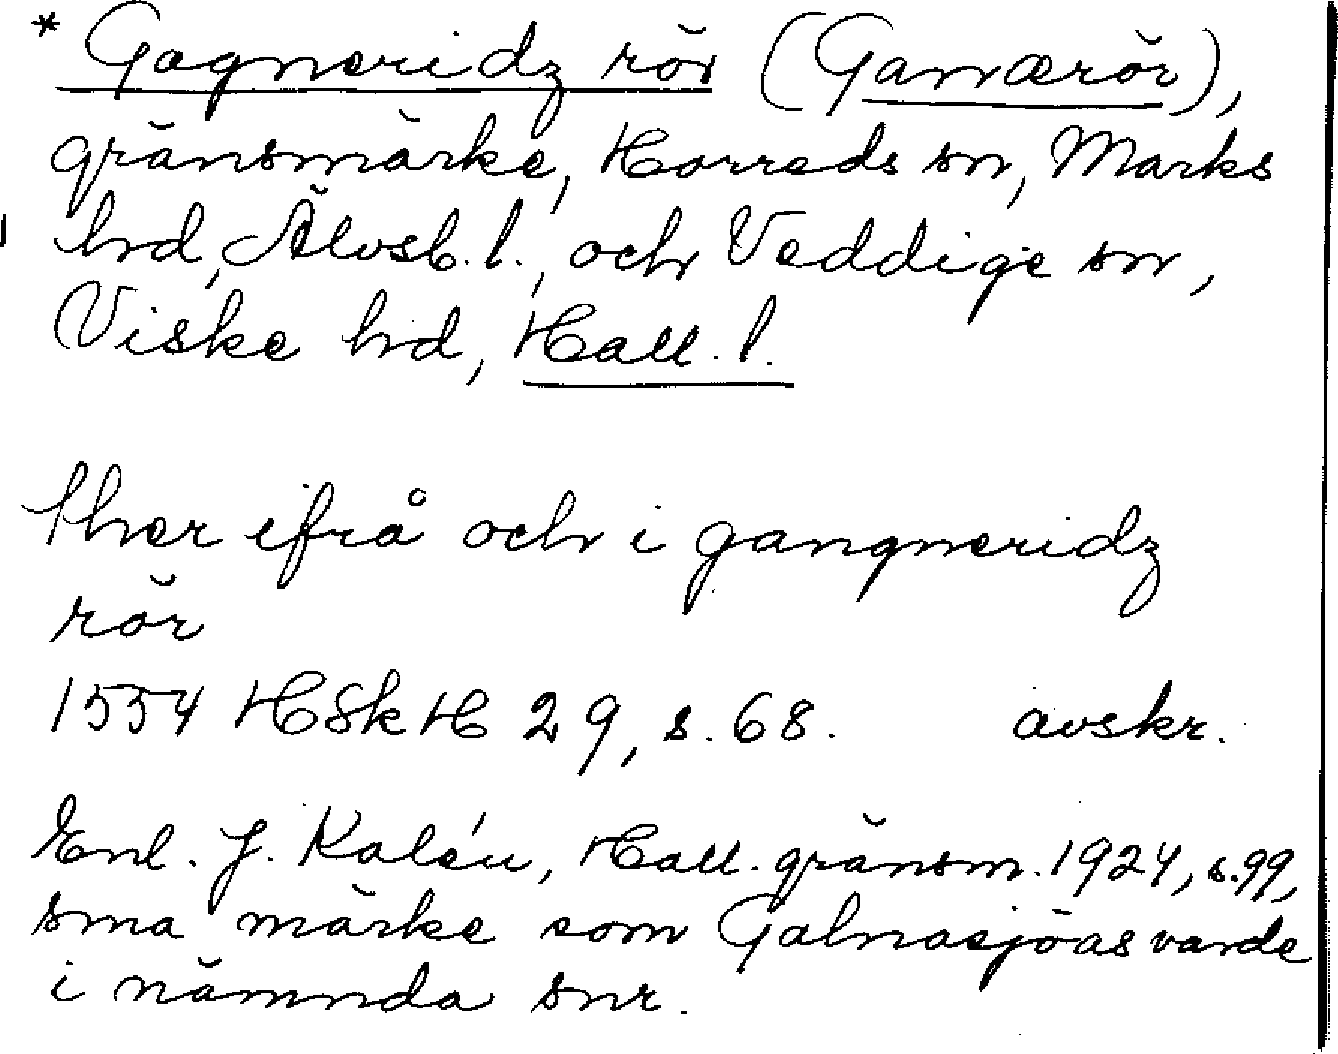 * Gagneridz rör (Ganærör),
gränsmärke, Horreds sn, Marks
hd, Älvsb. l., och Veddige sn,
Viske hd, Hall. l.
ther ifrå och i gangneridz
rör
1554 HSkH 29, s. 68. avskr.
Enl. J. Kalén, Hall. gränsm. 1924, s. 99,
sma märke som Galnasjöas varde
i nämnda snr.